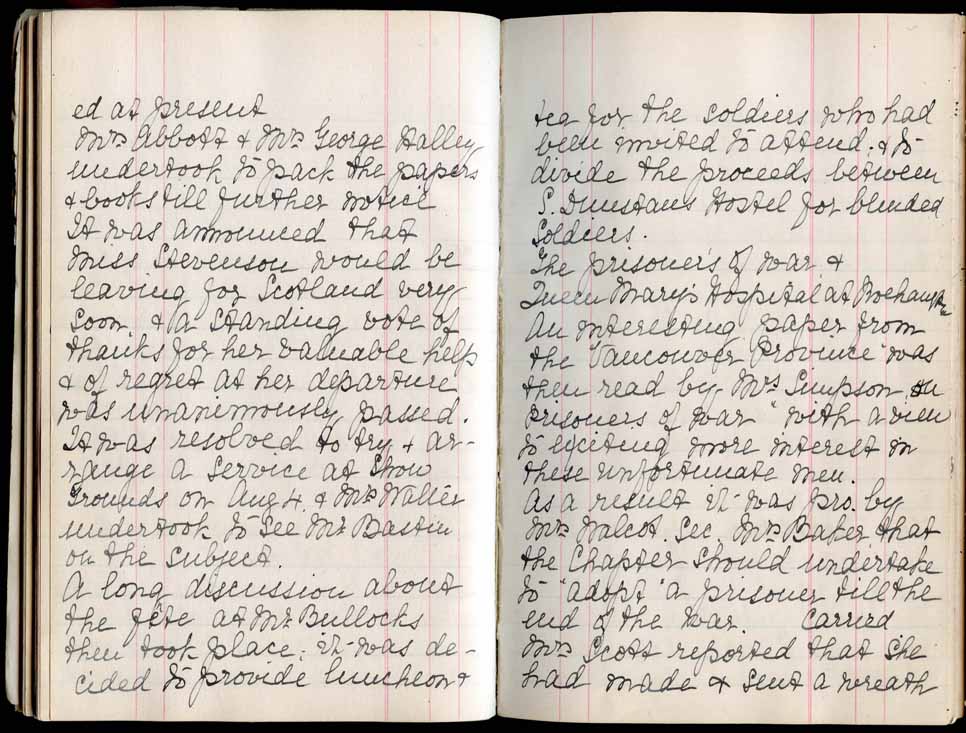 ed at present
Mrs Abbott & Mrs George Halley
undertook to pack the papers
& books till further notice
It was announced that
Miss Stevenson would be
leaving for Scotland very
soon, & a standing vote of
thanks for her valuable help
& of regret at her departure
was unanimously passed.
It was resolved to try & ar-
range a service at Show
Grounds on Aug 4 & Mrs Walter
undertook to see Mr Bastin
on the subject.
A long discussion about
the fête at Mr Bullocks
then took place; it was de-
cided to provide luncheon &
tea for the soldiers who had
been invited to attend. & to
divide the proceeds between
S. Dunstans Hostel for blinded
Soldiers.
The prisoners of war &
Queen Mary's Hospital at Roehampton
An interesting paper from
the "Vancouver Province" was
then read by Mrs Simpson on
Prisoners of war" with a view
to exciting more interest in
these unfortunate men.
As a result it was pro. by
Mrs Walcot. Sec. Mrs Baker that
the Chapter should undertake
to "adopt" a prisoner till the
end of the war. Carried
Mrs Scott reported that she
had made & sent a wreath